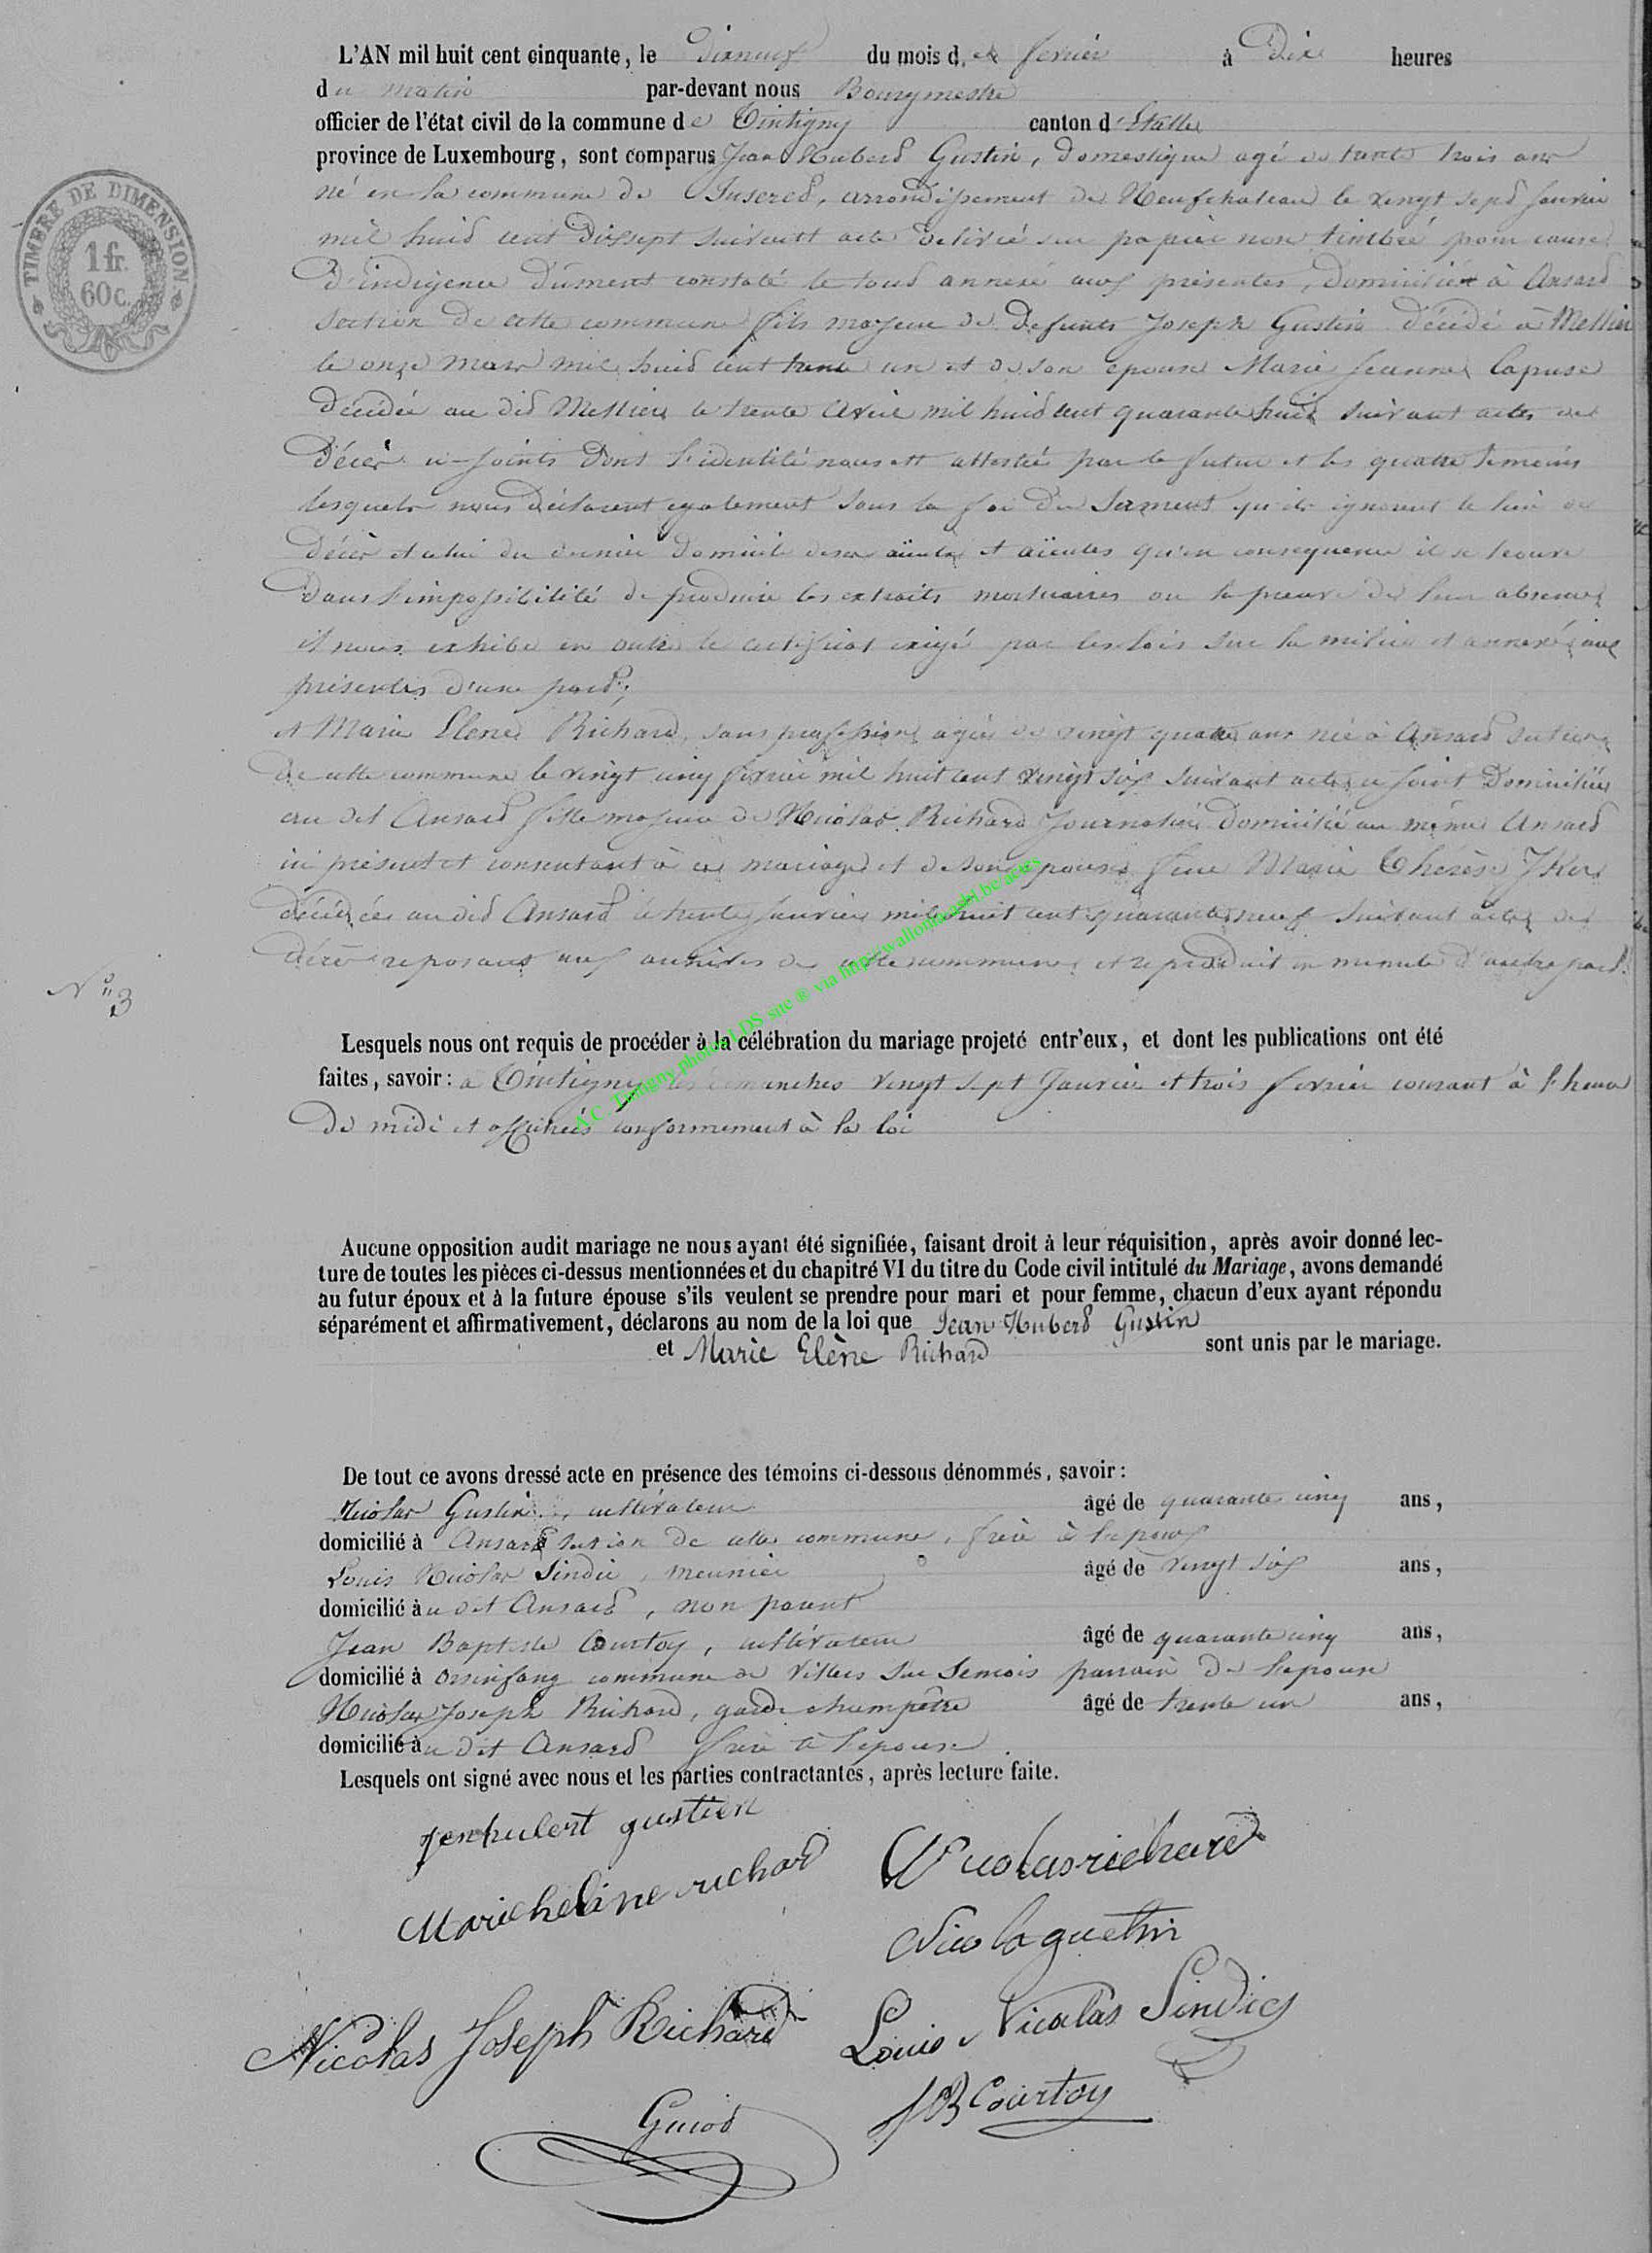 L'AN mil huit cent cinquante, le dixneuf du mois de fevrier à Dix heures
du matin par-devant nous Bourgmestre
officier de l'état civil de la commune de Tintigny canton d'Etalle
province de Luxembourg, sont comparus Jean Hubert Gustin, Domestique agé de trente trois ans
né en la commune de Juseret, arrondissement de Neufchateau le vingt sept Janvier
mil huit cent Dixsept suivant acte delivré sur papier non timbré pour cause
D'indigence Dument constaté le tout annexé aux présentes, Domicilié à Ansart
section de cette commune fils majeur de Defunts Joseph Gustin Décédé à Mellier
le onze mars mil huit cent trente un et de son epouse Marie Jeanne
Décédée au dit Mellier le trente Avril mil huit cent quarante huit suivant actes de
Décès ci-joints Dont l'identité nous est attestée par le futur et les quatre temoins
lesquels nous Déclarent egalement sous la foi Du Serment qu'ils ignorent le lieu de
Décès et celui du dernier Domicile de ses aïeuls et aïeules qu'en consequence il se trouve
Dans l'impossibilité de produire les extraits mortuaires ou la preuve de leur absence
il nous exhibe en outre le certificat exigé par les lois sur la milice et annexé aux
présentes d'une part;
et Marie Elene Richard, sans profession agée de vingt quatre ans née à Ansart section
de cette commune le vingt cinq fevrier mil huit cent vingt six suivant acte ci joint Domiciliée
au dit Ansard fille majeure de Nicolas Richard Journalier Domicilié au même Ansard
ici présent et consentant à ce mariage et de son epouse feue Marie Thérèse
décédée au dit Ansard le trente Janvier mil huit cent quarante neuf suivant acte de
décès reposant aux archives de cette commune et reproduit en minute d'autre part.
N° 3
Lesquels nous ont requis de procéder à la célébration du mariage projeté entr'eux, et dont les publications ont été
faites, savoir: à Tintigny les dimanches vingt sept Janvier et trois fevrier courant à l'heure
De midi et affichés conformement à la loi
Aucune opposition audit mariage ne nous ayant été signifiée, faisant droit à leur réquisition, après avoir donné lec-
ture de toutes les pièces ci-dessus mentionnées et du chapitre VI du titre du Code civil intitulé du Mariage, avons demandé
au futur époux et à la future épouse s'ils veulent se prendre pour mari et pour femme, chacun d'eux ayant répondu
séparément et affirmativement, déclarons au nom de la loi que Jean Hubert Gustin
et Marie Elène Richard sont unis par le mariage.
De tout ce avons dressé acte en présence des témoins ci-dessous dénommés, savoir:
Nicolas Gustin, cultivateur âgé de quarante cinq ans,
domicilié à Ansart section de cette commune, frère à l'epoux
Louis Nicolas Sindic, meunier âgé de vingt six ans,
domicilié au dit Ansard, non parent
Jean Baptiste Courtoy, cultivateur âgé de quarante cinq ans,
domicilié à Orsinfang commune de Villers Sur Semois parrain de l'epouse
Nicolas Joseph Richard, garde champêtre âgé de trente un ans,
domicilié au dit Ansard frère à l'epouse
Lesquels ont signé avec nous et les parties contractantes, après lecture faite.
jenhubert gustien
Mariehelinerichard
Nicolasrichard
Nicola guethin
Nicolas Joseph Richard
Louis Nicolas Sindic
JB Courtoy
Guiot
TIMBRE DE DIMENSION
1 fr.
60 c.
A.C. Tintigny photos LDS site ® via http://wallonia-asbl.be/actes